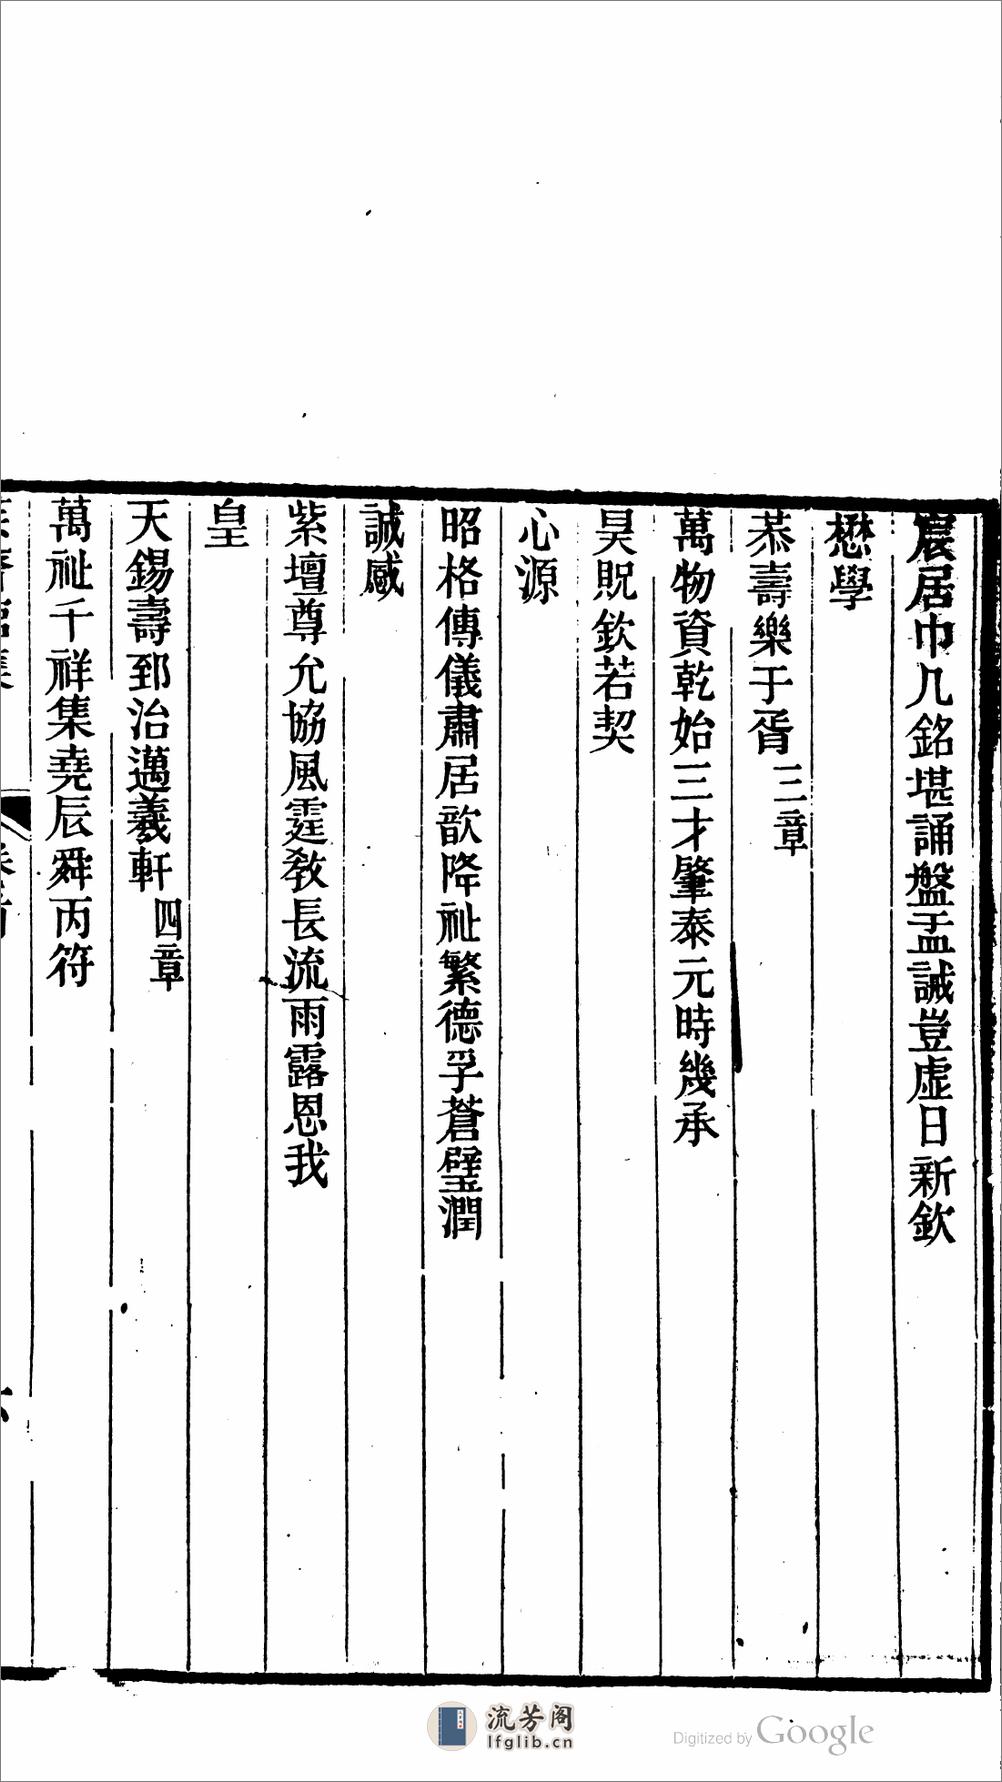 宸居巾几銘堪誦盤盂誡豈虛日新欽
懋學
恭壽樂于胥三章
萬物資乾始三才肇泰元時幾承
昊貺欽若契
心源
昭格傳儀肅居歆降祉繁德孚蒼璧潤
誠感
紫壇尊允協風霆敎長流雨露恩我
皇
天錫壽郅治邁羲軒四章
萬祉千祥集堯辰舜丙符
流芳阁
lfglib.cn
Digitized by Google